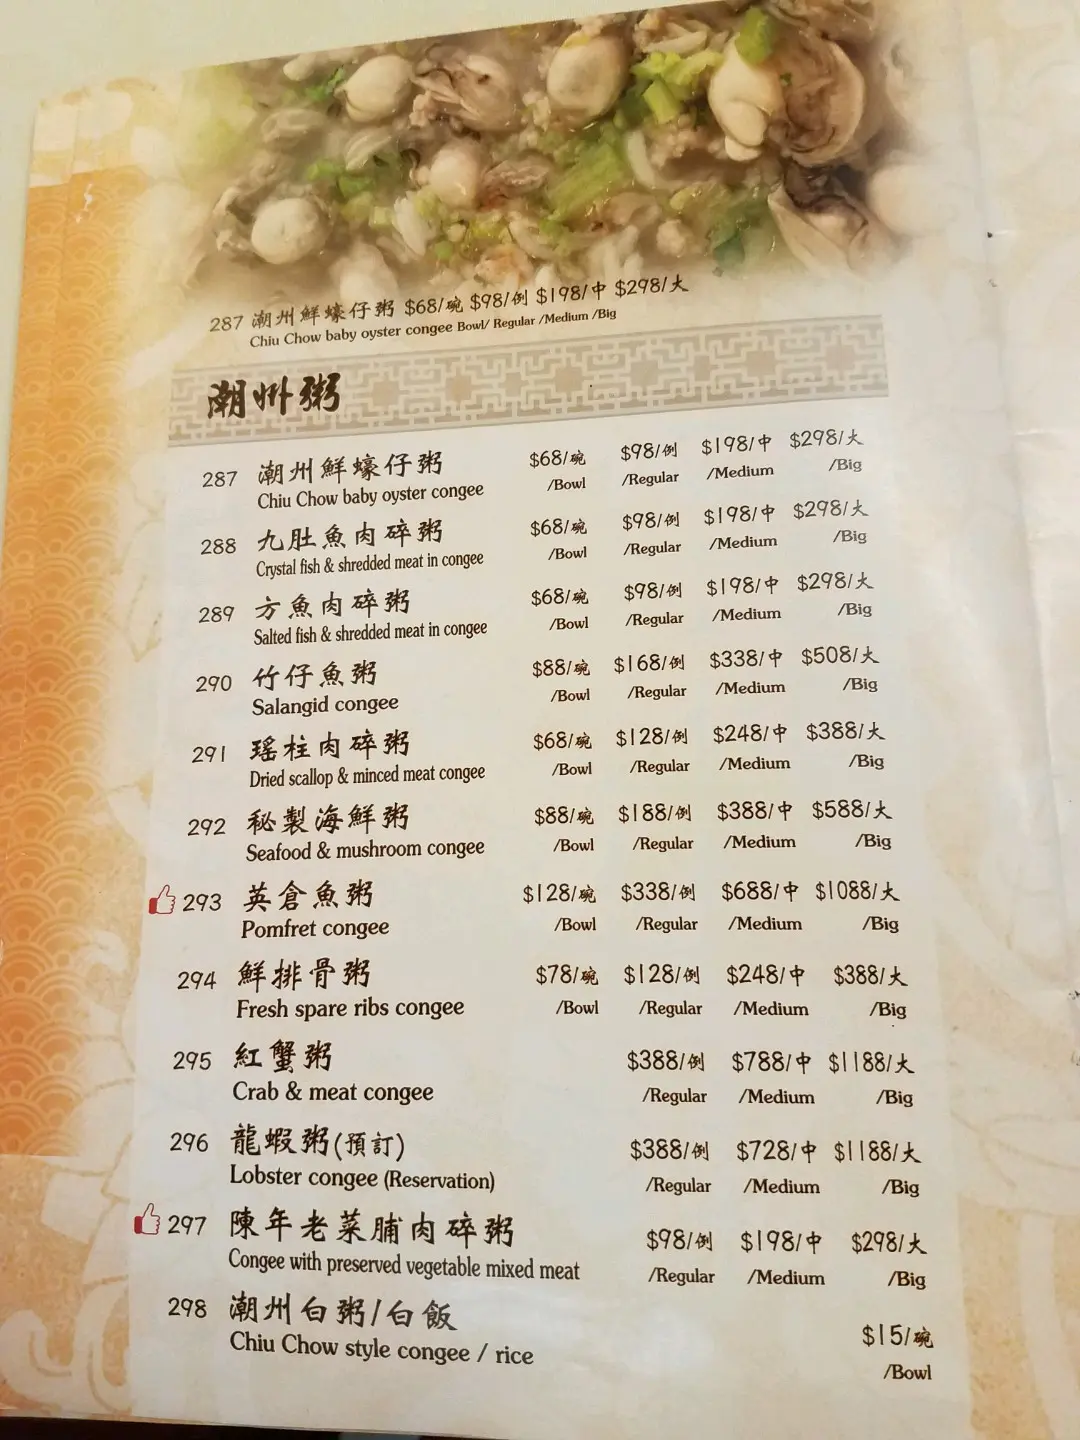 287 潮州鮮蠔仔粥 $68/碗 $98/例 $198/中 $298/大
Chiu Chow baby oyster congee Bowl/ Regular /Medium /Big
潮州粥
287 潮州鮮蠔仔粥 $68/碗 $98/例 $198/中 $298/大
Chiu Chow baby oyster congee /Bowl /Regular /Medium /Big
288 九肚魚肉碎粥 $68/碗 $98/例 $198/中 $298/大
Crystal fish & shredded meat in congee /Bowl /Regular /Medium /Big
289 方魚肉碎粥 $68/碗 $98/例 $198/中 $298/大
Salted fish & shredded meat in congee /Bowl /Regular /Medium /Big
290 竹仔魚粥 $88/碗 $168/例 $338/中 $508/大
Salangid congee /Bowl /Regular /Medium /Big
291 瑤柱肉碎粥 $68/碗 $128/例 $248/中 $388/大
Dried scallop & minced meat congee /Bowl /Regular /Medium /Big
292 秘製海鮮粥 $88/碗 $188/例 $388/中 $588/大
Seafood & mushroom congee /Bowl /Regular /Medium /Big
293 英倉魚粥 $128/碗 $338/例 $688/中 $1088/大
Pomfret congee /Bowl /Regular /Medium /Big
294 鮮排骨粥 $78/碗 $128/例 $248/中 $388/大
Fresh spare ribs congee /Bowl /Regular /Medium /Big
295 紅蟹粥 $388/例 $788/中 $1188/大
Crab & meat congee /Regular /Medium /Big
296 龍蝦粥(預訂) $388/例 $728/中 $1188/大
Lobster congee (Reservation) /Regular /Medium /Big
297 陳年老菜脯肉碎粥 $98/例 $198/中 $298/大
Congee with preserved vegetable mixed meat /Regular /Medium /Big
298 潮州白粥/白飯 $15/碗
Chiu Chow style congee / rice /Bowl